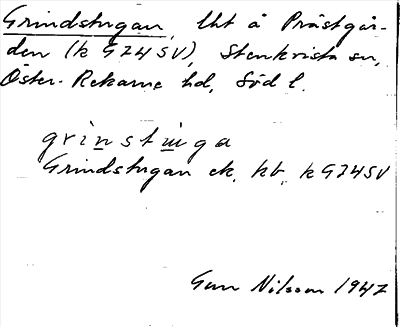 Grindstugan, lht å Prästgår-
den (k G74SV), Stenkvista sn,
Öster-Rekarne hd, Söd l.
grinstuga
Grindstugan ek. kb, k G74SV
Gun Nilsson 1947